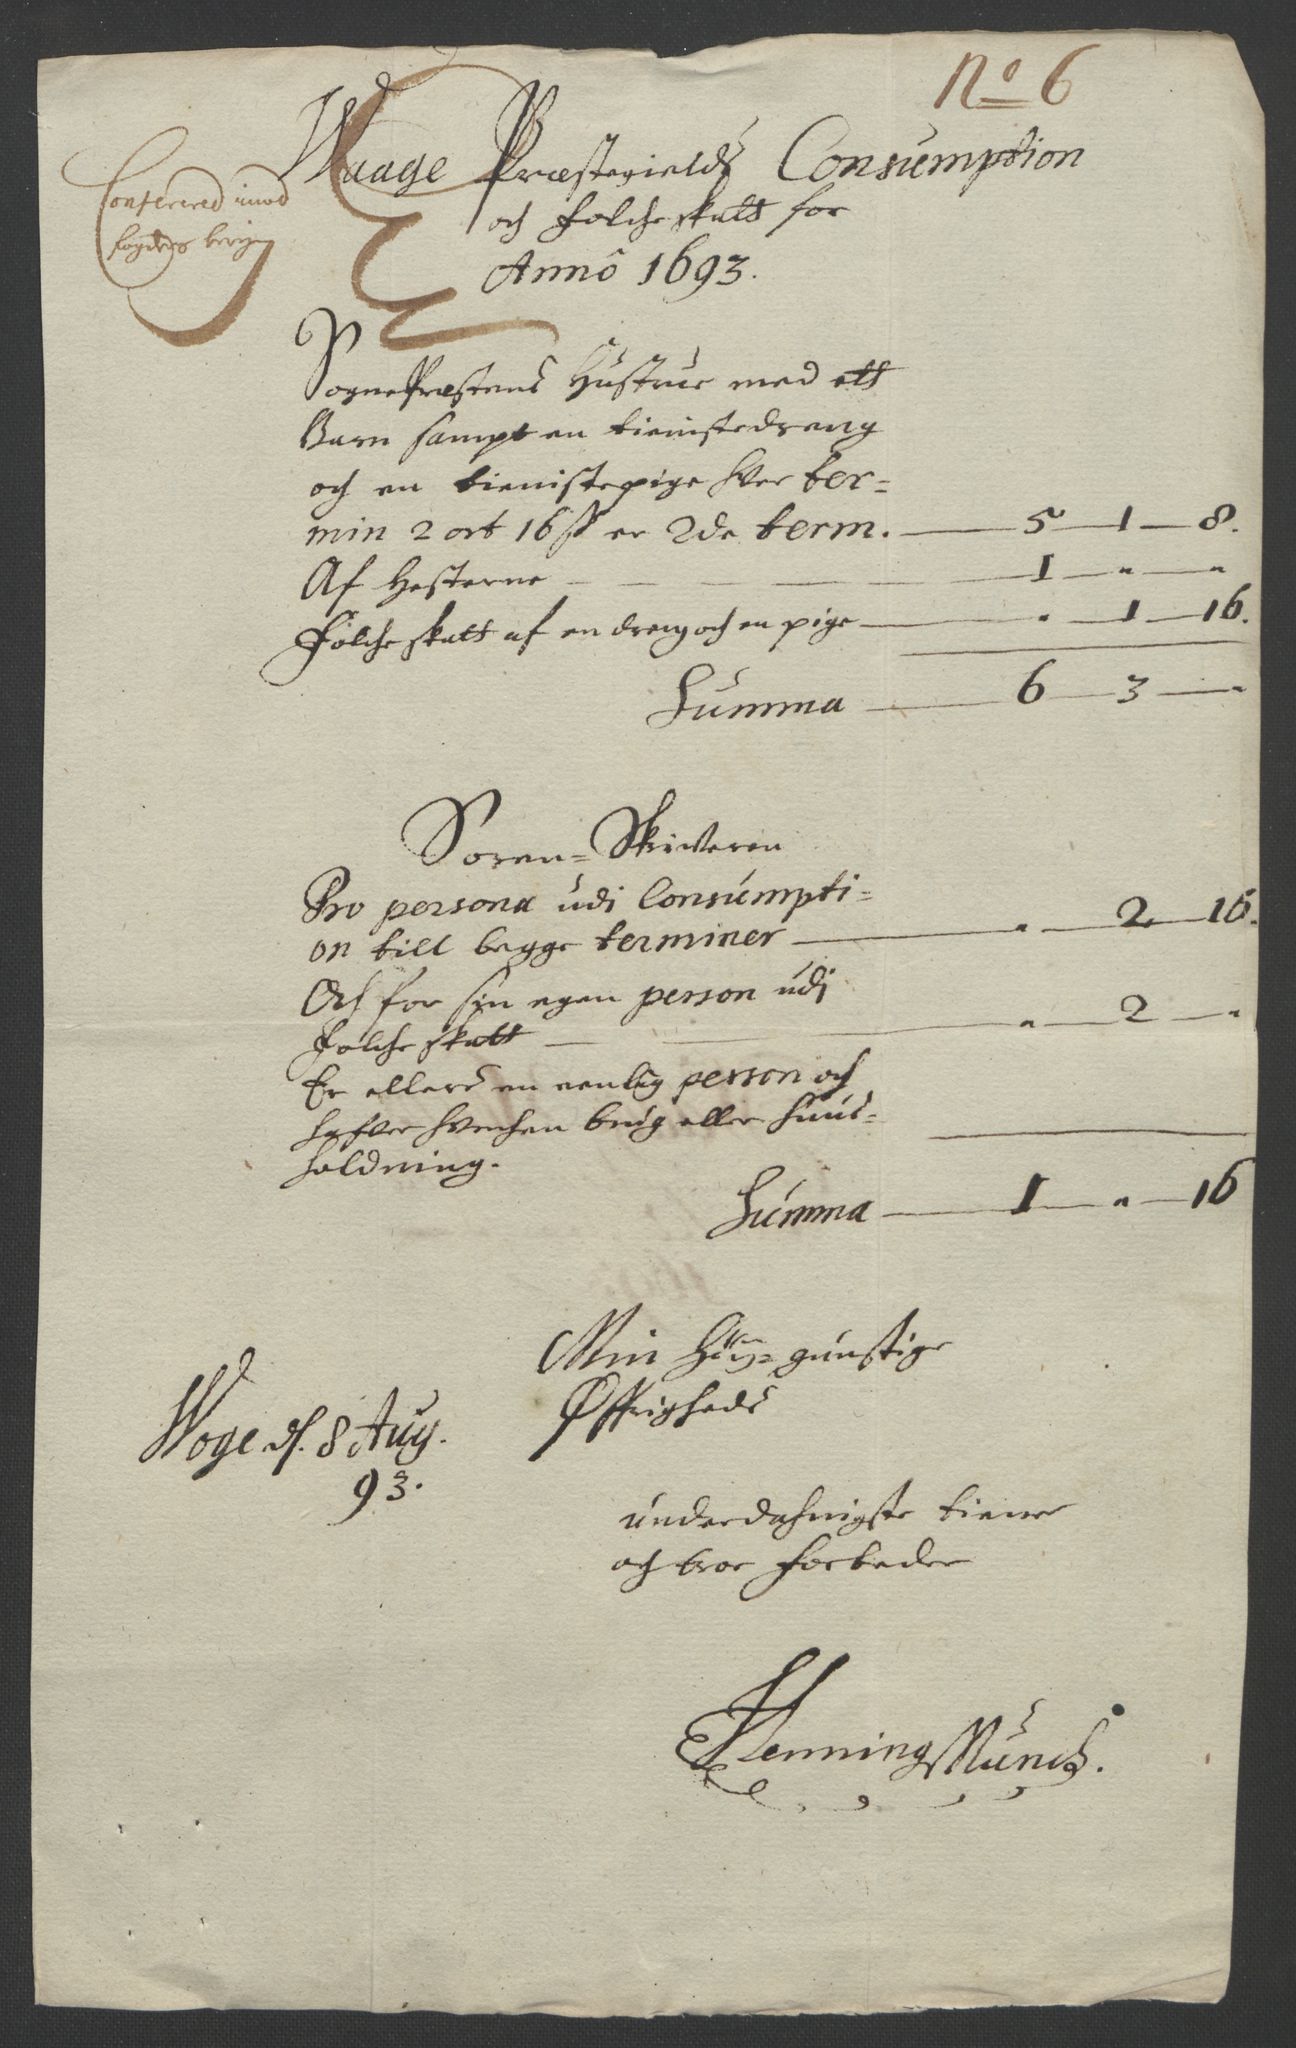 No 6
Waage Præstegields Consumption
och folche skatt for
Annô 1693.
Conferered imod
fogdens
SognePræstens Hustrue med ett
Barn sampt en tienistedreng
och en tienistepige hver ter=
min 2 ort 16 ß er 2de term. — 5 — 1 — 8.
Af Hesterne — 1 — " — "
Folche skatt af en dreng och en pige — " — 1 — 16.
Summa — 6 — 3 — "
Soren=Skriveren
Pro persona udi Consumpti=
on till begge terminer — " — 2 — 16.
Och for sin egen person udi
folche skatt — " — 2 — "
Er ellers en eenlig person och
hafver hverchen brug eller huus=
holdning.
Summa — 1 — " — 16
Min Høy=gunstige
Øffrigheds
Woge d. 8 Aug.
93.
underdahnigste tiener
och troe forbeder
Henning Munch.